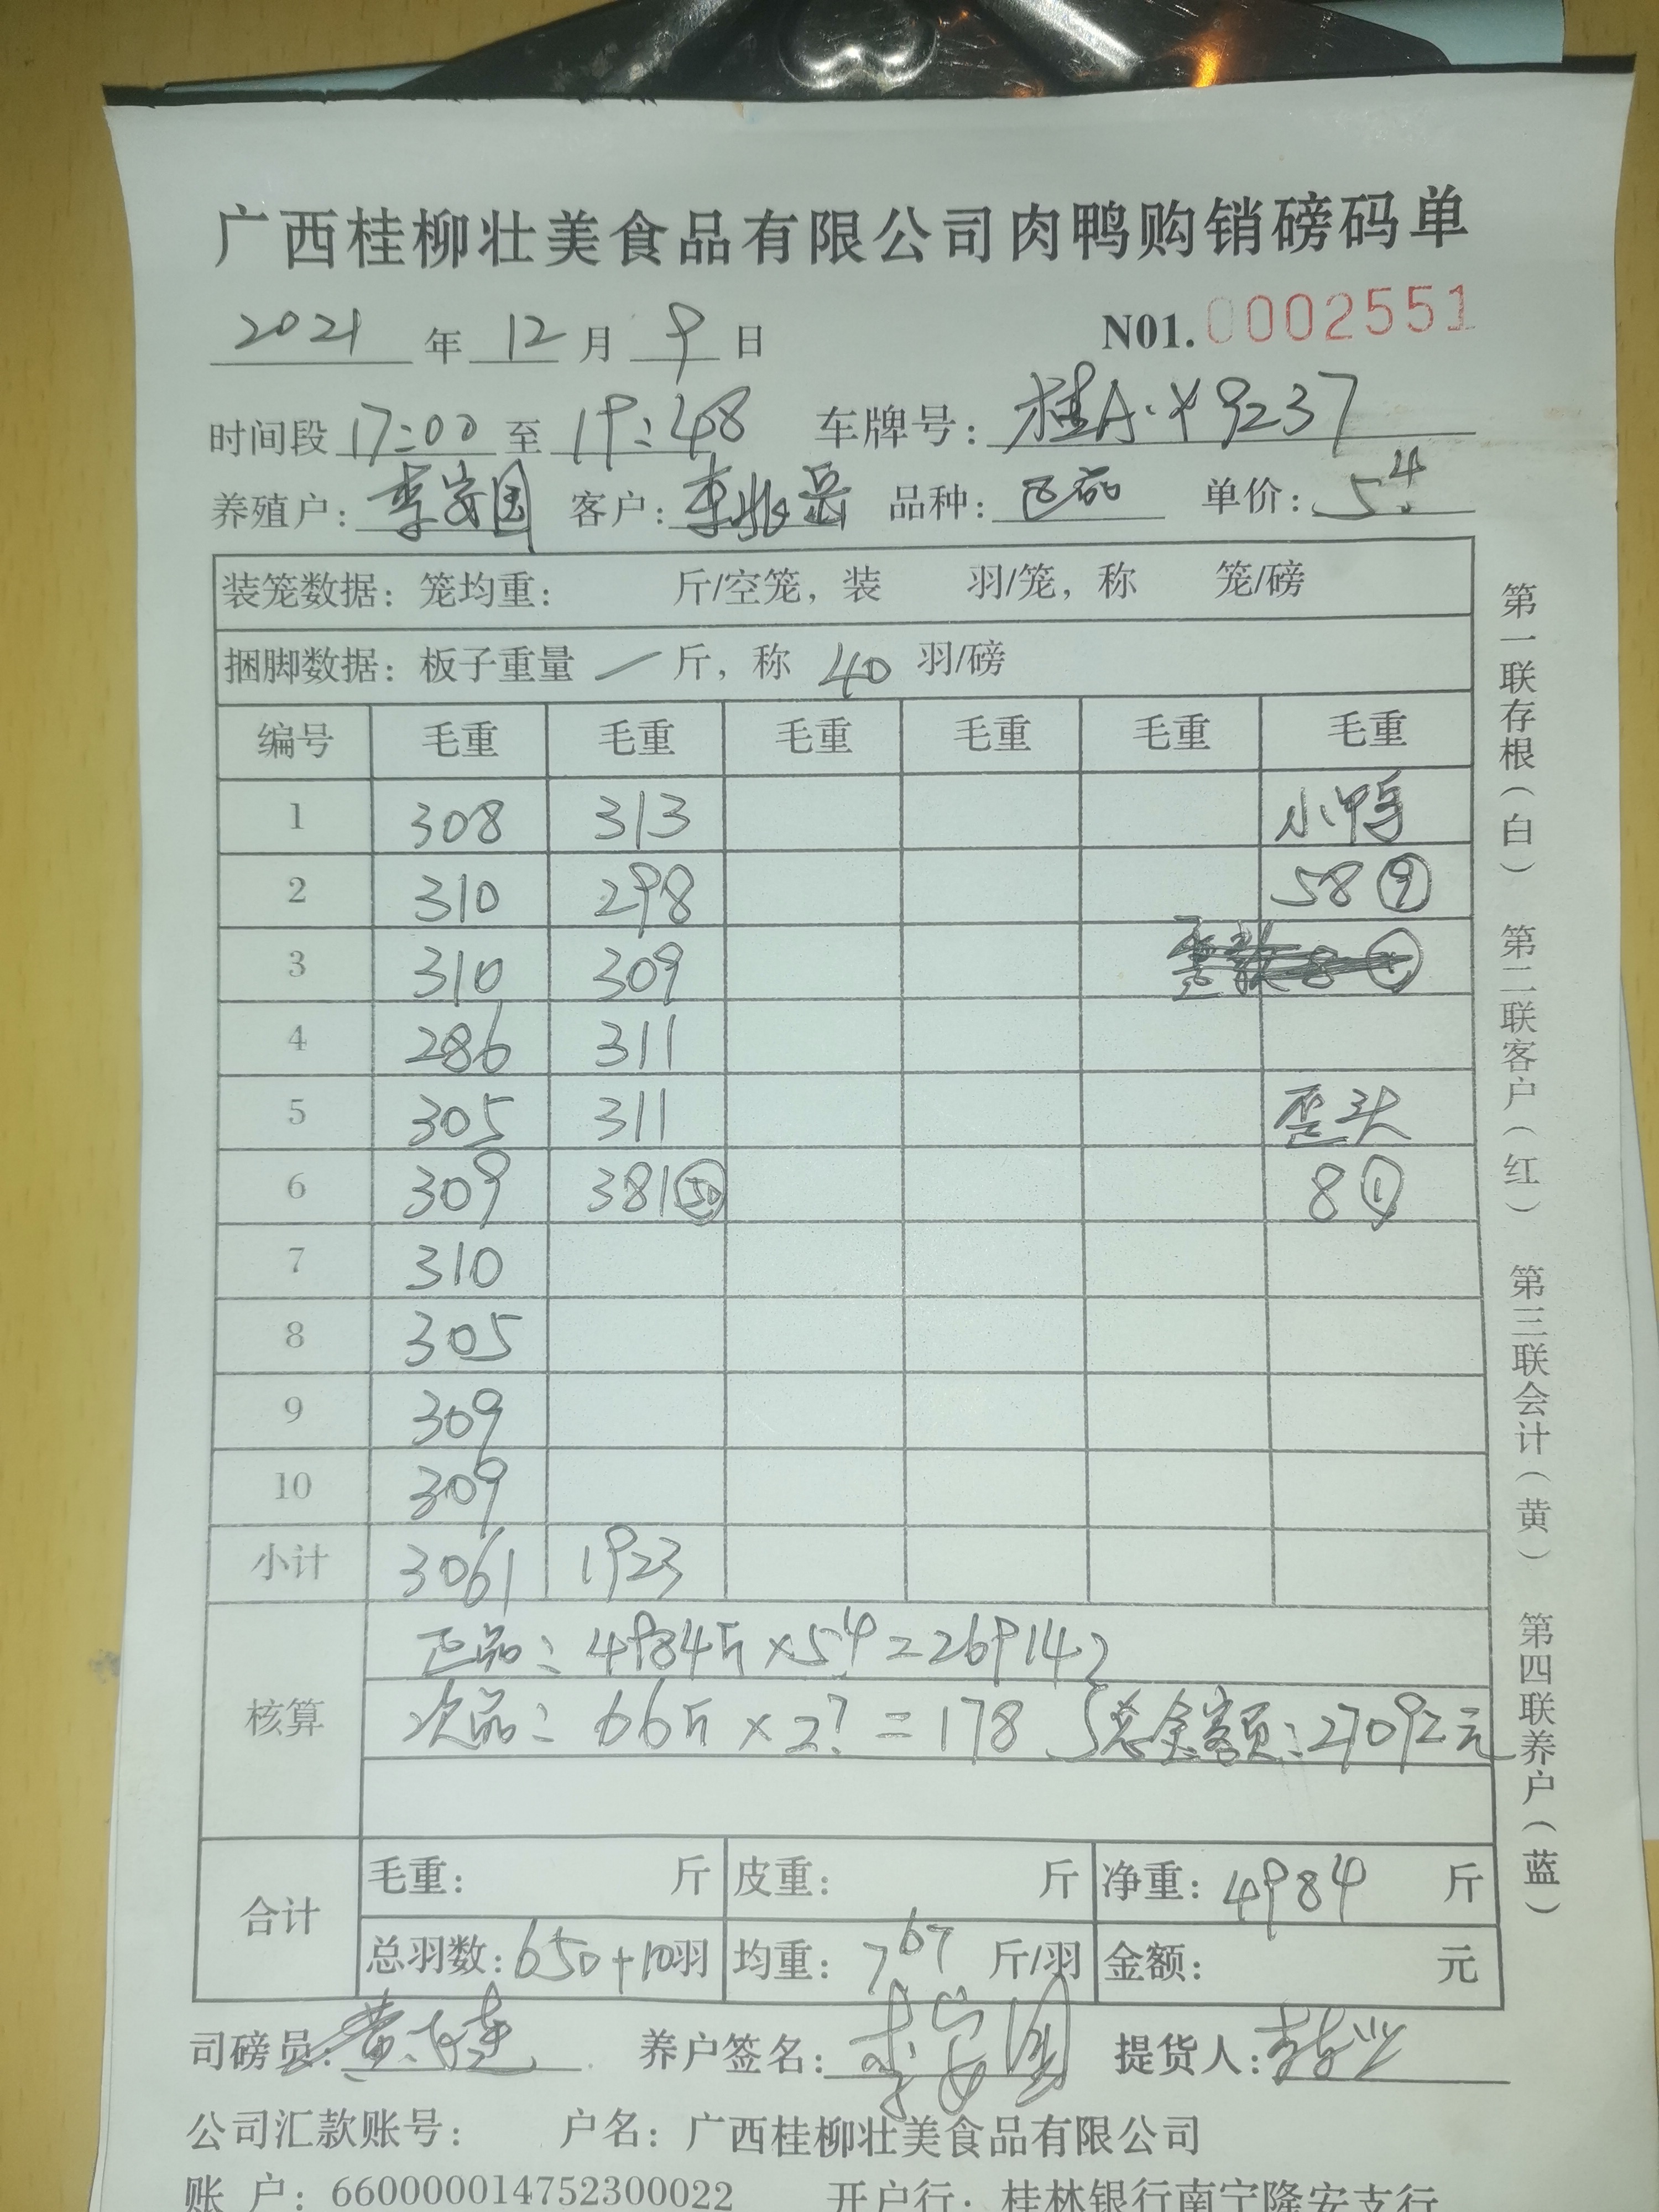 广西桂柳壮美食品有限公司肉鸭购销磅码单
2021 年 12 月 9 日 N01. 0002551
时间段 17:00 至 19:48 车牌号: 桂A·Y9237
养殖户: 李安国 客户: 李兆岳 品种: 正品 单价: 5.4
装笼数据: 笼均重: 斤/空笼, 装 羽/笼, 称 笼/磅
捆脚数据: 板子重量 一 斤, 称 40 羽/磅
编号 毛重 毛重 毛重 毛重 毛重 毛重
1 308 313 小鸭
2 310 298 58 ⑨
3 310 309
4 286 311
5 305 311 歪头
6 309 381 ㊿ 8 ①
7 310
8 305
9 309
10 309
小计 3061 1923
核算
正品: 4984斤×5.4=26914
次品: 66斤×2.7=178 总金额:27092元
合计
毛重: 斤 皮重: 斤 净重: 4984 斤
总羽数: 650+10羽 均重: 7.67 斤/羽 金额: 元
司磅员: 养户签名: 李安国 提货人:
公司汇款账号: 户名: 广西桂柳壮美食品有限公司
账 户: 660000014752300022 开户行: 桂林银行南宁隆安支行
第一联存根(白) 第二联客户(红) 第三联会计(黄) 第四联养户(蓝)